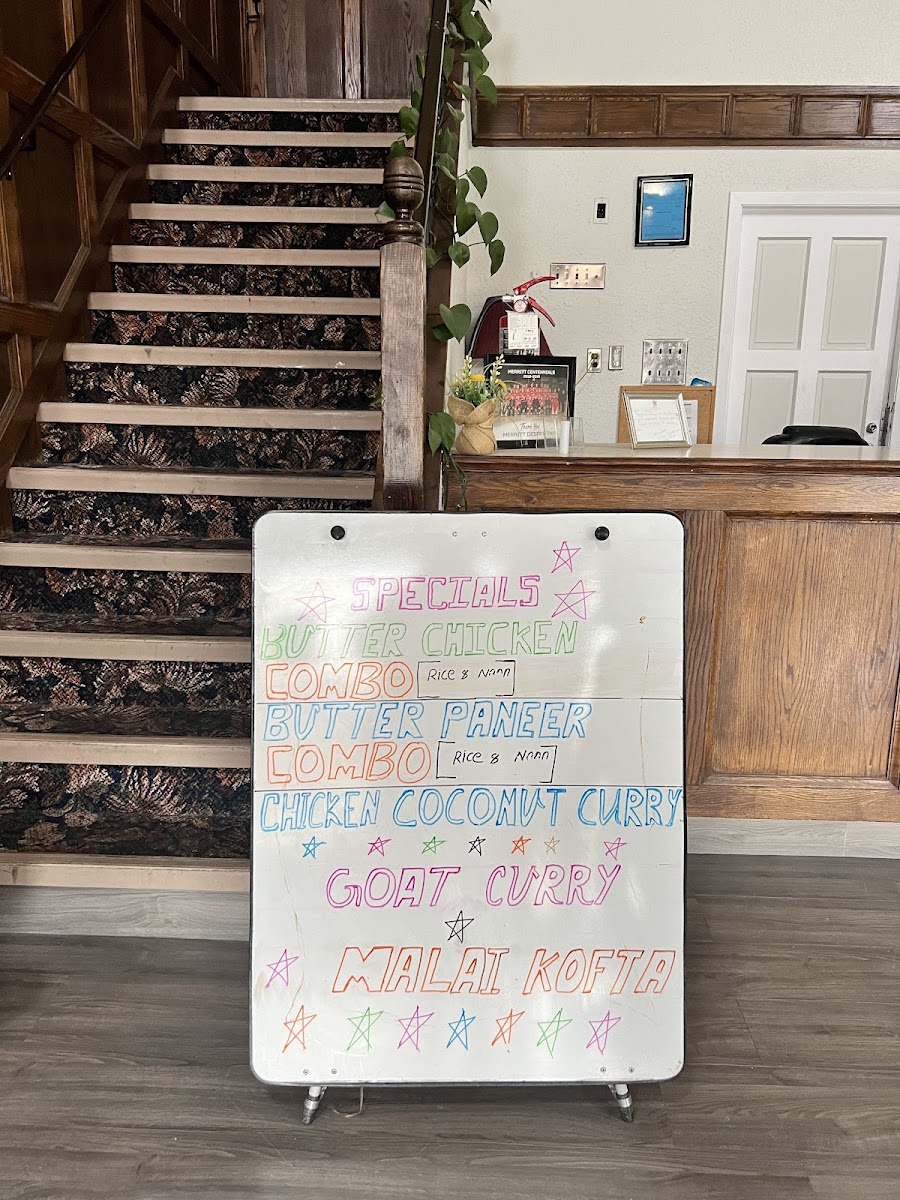 MERRITT CENTENNIALS
Thank You
SPECIALS
BUTTER CHICKEN
COMBO Rice & Nann
BUTTER PANEER
COMBO Rice & Nann
CHICKEN COCONUT CURRY
GOAT CURRY
MALAI KOFTA